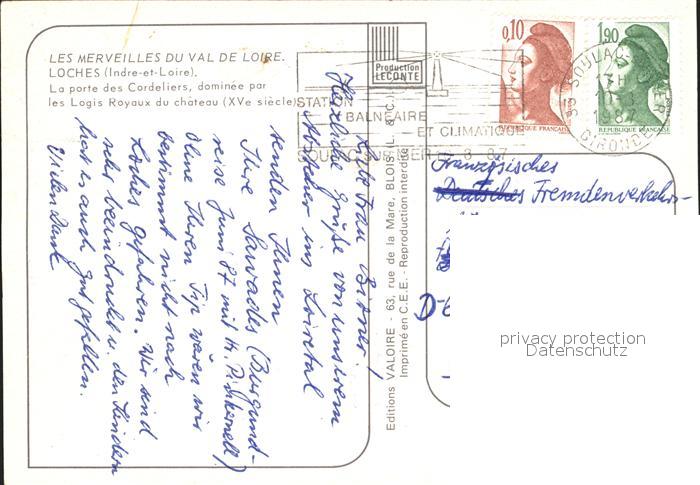 LES MERVEILLES DU VAL DE LOIRE.
LOCHES (Indre-et-Loire).
La porte des Cordeliers, dominée par
les Logis Royaux du château (XVe siècle)
Production
LECONTE
STATION
BALNEAIRE
ET CLIMATIQUE
0,10
RÉPUBLIQUE FRANÇAISE
1,90
RÉPUBLIQUE FRANÇAISE
33 SOULAC
17 H
1987
GIRONDE
Liebe Frau
Herzliche Grüße von unserem
Abstecher ins Loiretal
senden Ihnen
Ihre
reise Juni 87 mit H. Pinkernell)
Ohne Ihren Tip wären wir
bestimmt nicht nach
Loches gefahren. Wir sind
sehr beeindruckt u. den Kindern
hat es auch gut gefallen.
Vielen Dank
Editions VALOIRE - 63, rue de la Mare, BLOIS (L. & C.)
Imprimé en C.E.E. - Reproduction interdite
Französisches
Deutsches Fremdenverkehrs-
D-6
privacy protection
Datenschutz